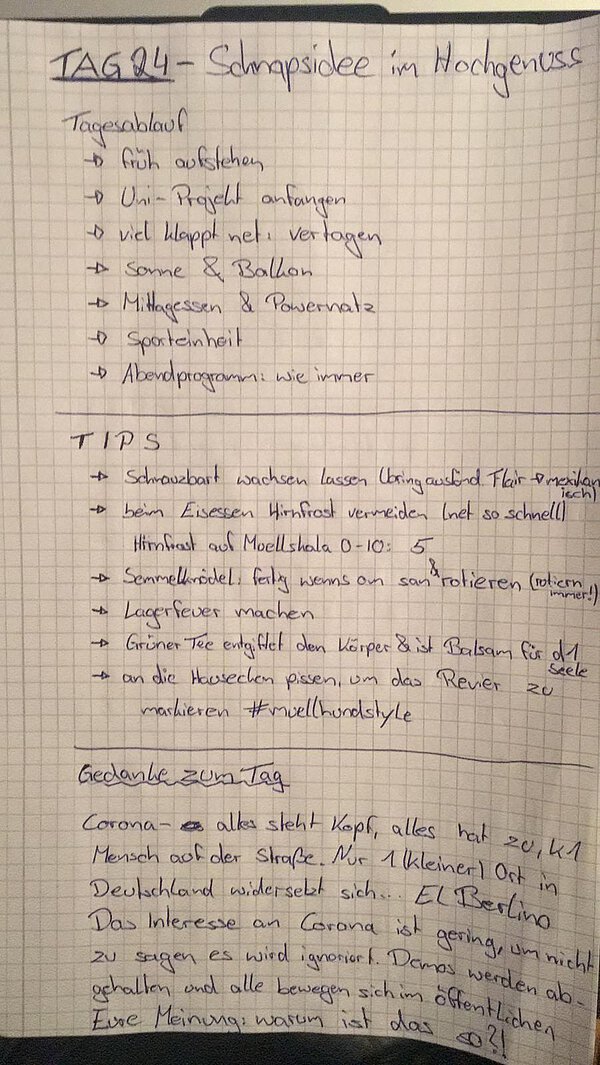 TAG 24 - Schnapsidee im Hochgenuss
Tagesablauf
→ früh aufstehen
→ Uni-Projekt anfangen
→ viel klappt net: vertagen
→ Sonne & Balkon
→ Mittagessen & Powernatz
→ Sporteinheit
→ Abendprogramm: wie immer
TIPS
→ Schnauzbart wachsen lassen (bring ausländ. Flair → mexikan
isch)
→ beim Eisessen Hirnfrost vermeiden (net so schnell)
Hirnfrost auf Moellskala 0-10: 5
→ Semmelknödel: fertig wenns om san & rotieren (rotiern
immer!)
→ Lagerfeuer machen
→ Grüner Tee entgiftet den Körper & ist Balsam für d1
Seele
→ an die Hausecken pissen, um das Revier zu
markieren #moellhundstyle
Gedanke zum Tag
Corona - alles steht Kopf, alles hat zu, k1
Mensch auf der Straße. Nur 1 (kleiner) Ort in
Deutschland widersetzt sich... El Berlino
Das Interesse an Corona ist gering, um nicht
zu sagen es wird ignoriert. Demos werden ab-
gehalten und alle bewegen sich im öffentlichen
Eure Meinung: warum ist das so?!